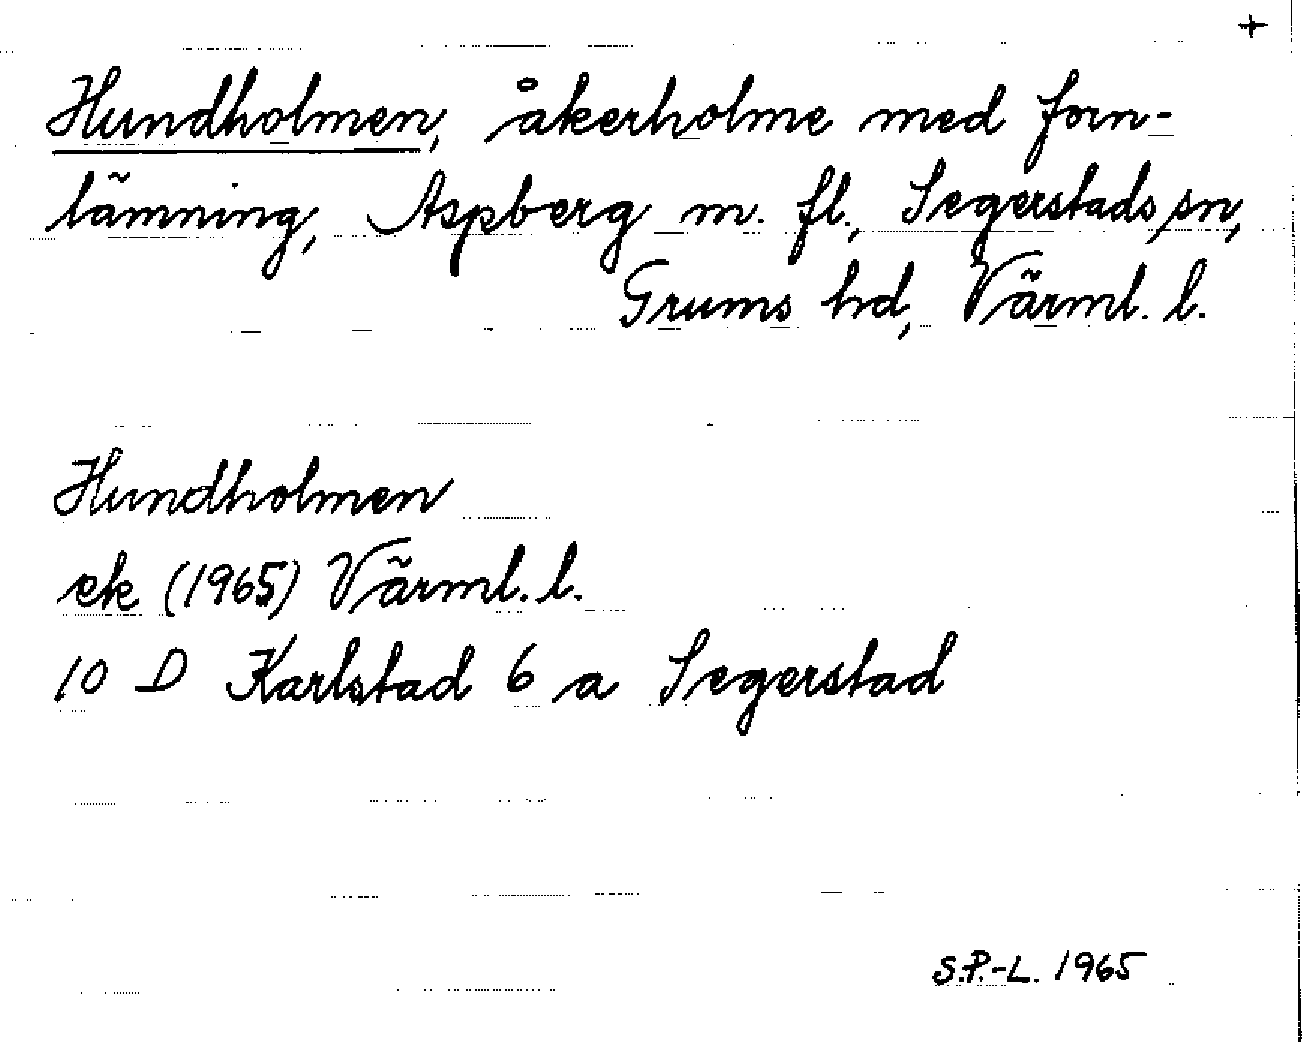 +
Hundholmen, åkerholme med forn-
lämning, Aspberg m. fl., Segerstads sn,
Grums hd, Värml. l.
Hundholmen
ek (1965) Värml. l.
10 D Karlstad 6 a Segerstad
S.P.-L. 1965